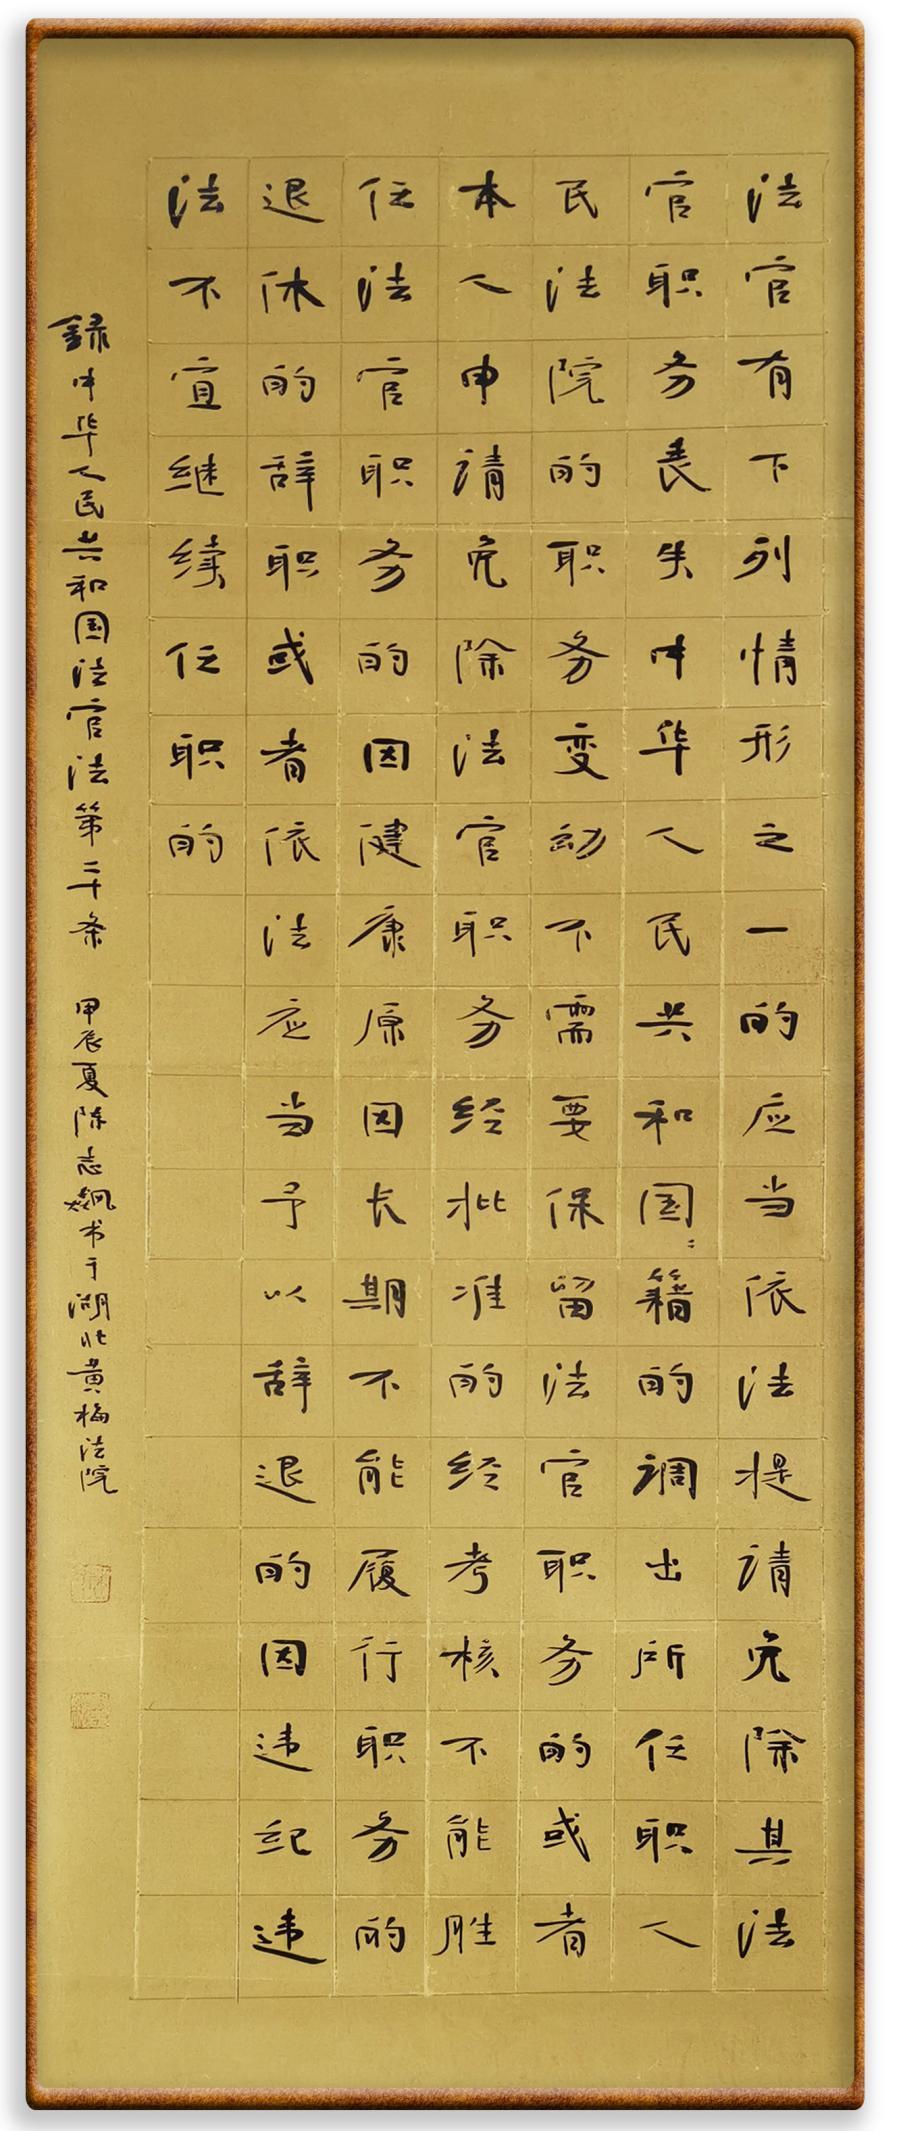 法官有下列情形之一的应当依法提请免除其法
官职务丧失中华人民共和国籍的调出所任职人
民法院的职务变动不需要保留法官职务的或者
本人申请免除法官职务经批准的经考核不能胜
任法官职务的因健康原因长期不能履行职务的
退休的辞职或者依法应当予以辞退的因违纪违
法不宜继续任职的
録中华人民共和国法官法第二十条 甲辰夏陈志飙书于湖北黄梅法院